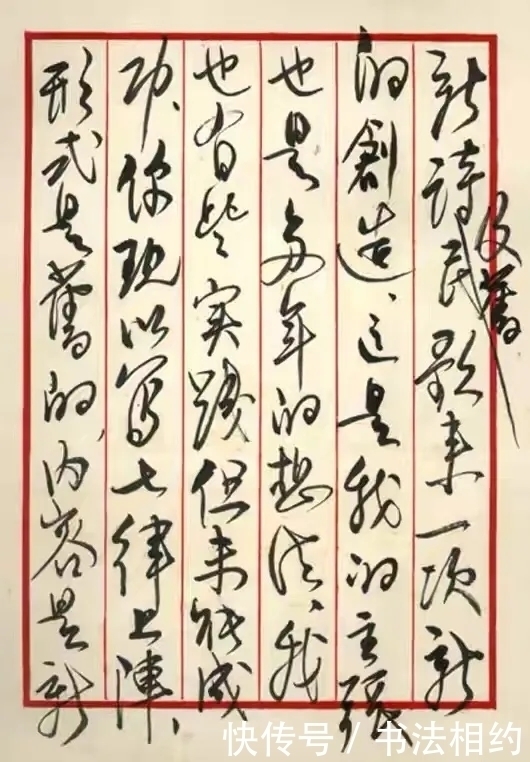 新詩及舊民歌来一次新
的創造、这是我的主張
也是多年的想法、我
也有些实踐但未能成
功、你現以写七律上陣、
形式是舊的、内容是新
快传号/书法相约